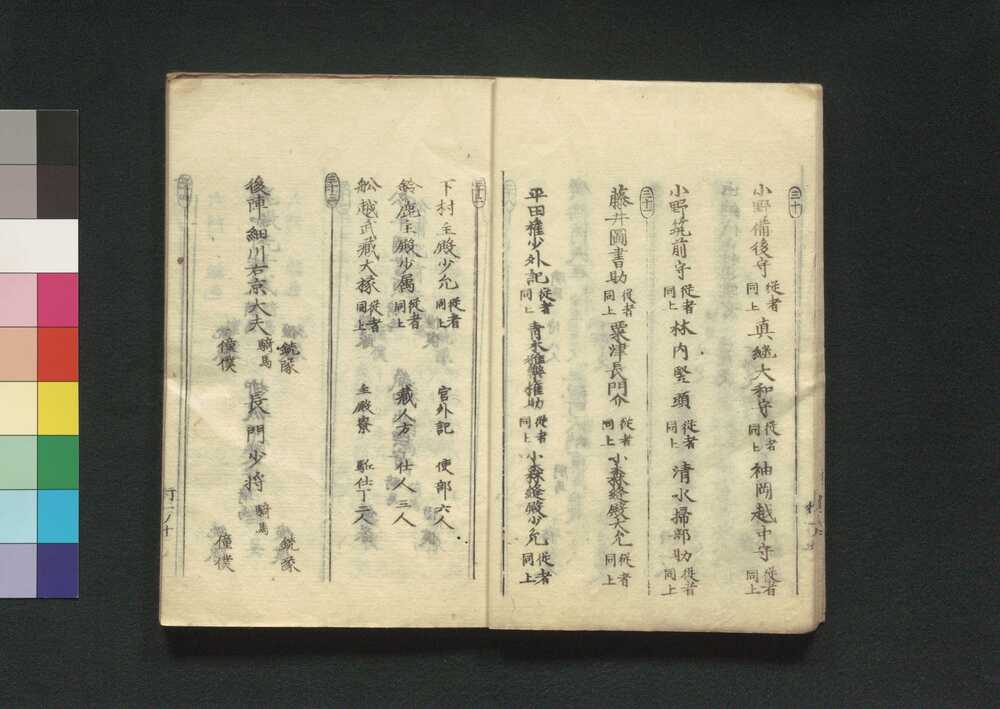 三十
小野備後守 従者同上 真継大和守 従者同上 袖岡越中守 従者同上
三十一
小野筑前守 従者同上 林内竪頭 従者同上 清水掃部助 従者同上
藤井圖書助 従者同上 粟津長門介 従者同上 小森縫殿大允 従者同上
平田権少外記 従者同上 青木雅楽権助 従者同上 小森縫殿少允 従者同上
三十二
下村主殿少允 従者同上 官外記 使部六人
鈴鹿主殿少属 従者同上 蔵人方 仕人三人
舩越武蔵大掾 従者同上 主殿寮 駈仕丁二人
三十三
後陣 細川右京大夫 騎馬 銃隊 僮僕 長門少将 騎馬 銃隊 僮僕